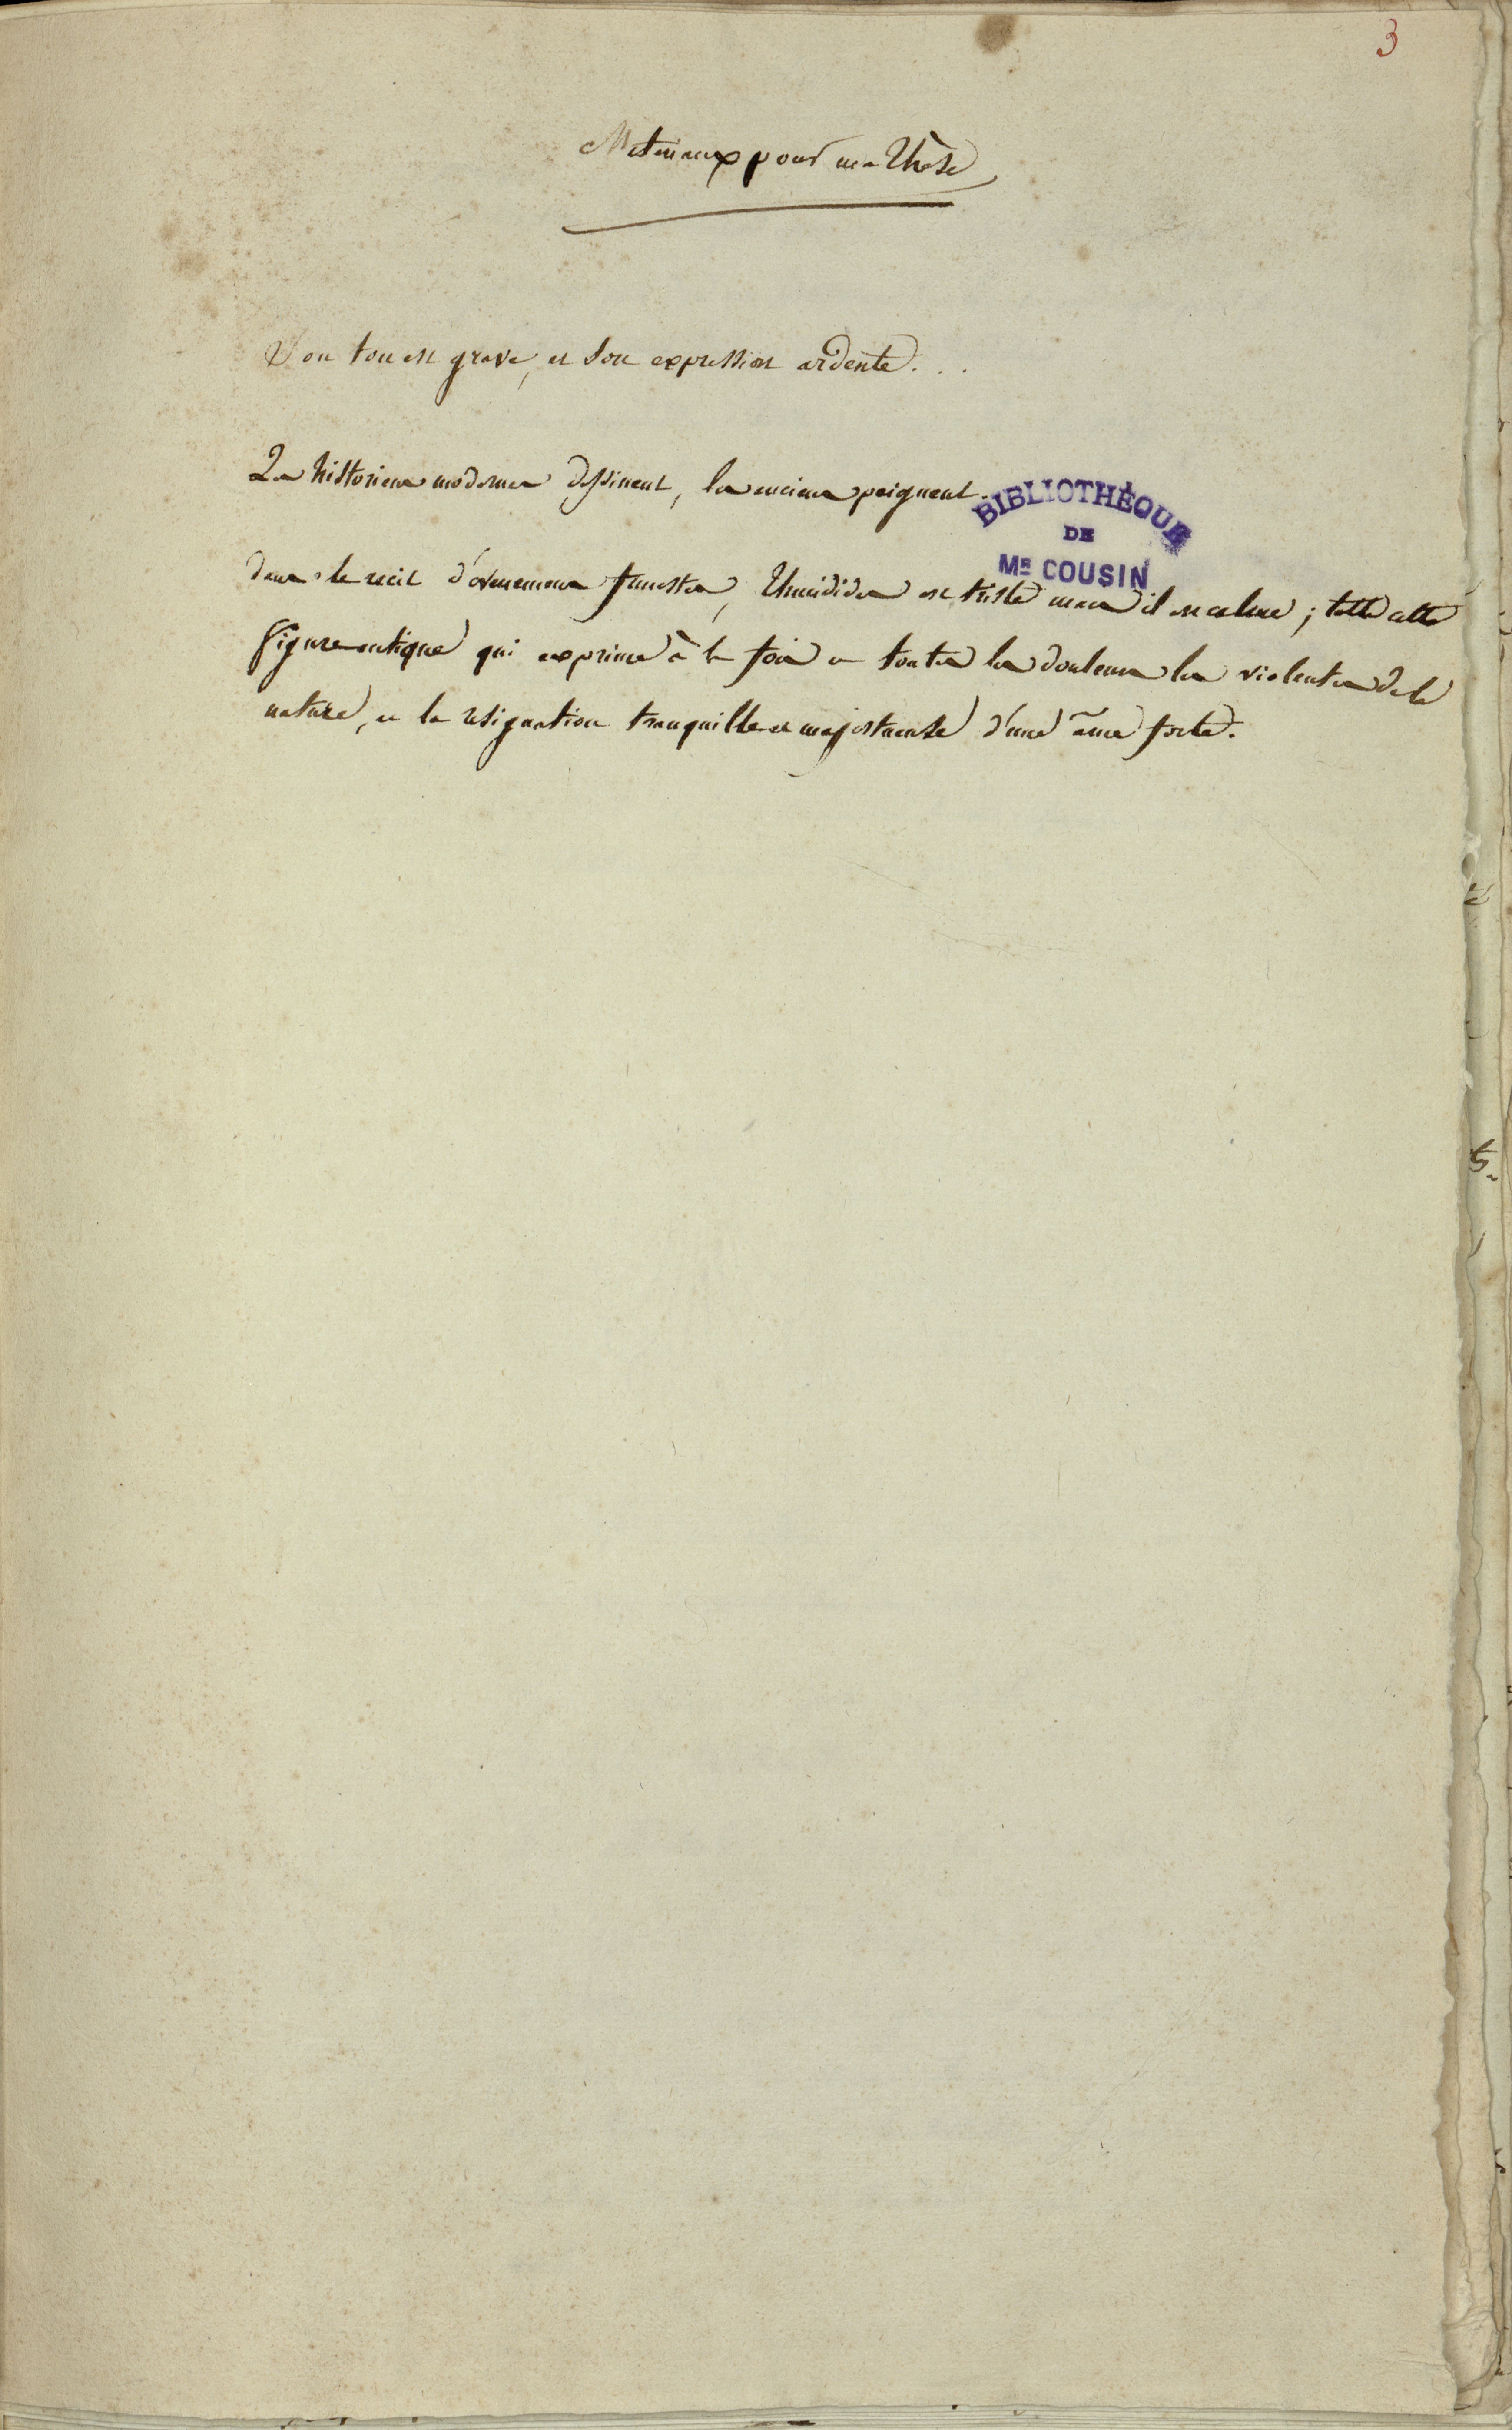 3
Materiaux pour ma Thèse
Son ton est grave, et son expression ardente...
Les historiens modernes dessinent, les anciens peignent.
BIBLIOTHÈQUE
DE
MR COUSIN
dans le recit d'évenemens funestes, Thucidides est triste mais il est calme; telle cette
figure antique qui exprime à la fois toutes les douleurs les violentes de la
nature, et la resignation tranquille et majestueuse d'une âme forte.